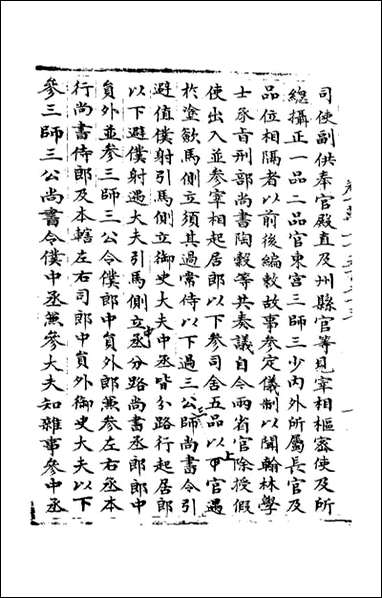 司使副供奉官殿直及州縣官等見宰相樞密使及所
總攝正一品二品官東宮三師三少內外所屬長官及
品位相隔者以前後編敕故事參定儀制以聞翰林學
士承旨刑部尚書陶穀等共奏議自今兩省官除授假
使出入並參宰相起居郎以下參司舍五品以甲官遇上
於塗歛馬側立須其過常侍以下遇三公三師尚書令引
避值僕射引馬側立御史大夫中丞皆分路行起居郎
以下避僕射遇大夫引馬側立中丞分路尚書丞郎郎中
員外並參三師三公令僕郎中員外郎兼參左右丞本
行尚書侍郎及本轄左右司郎中員外御史大夫以下
參三師三公尚書令僕中丞兼參大夫知雜事參中丞